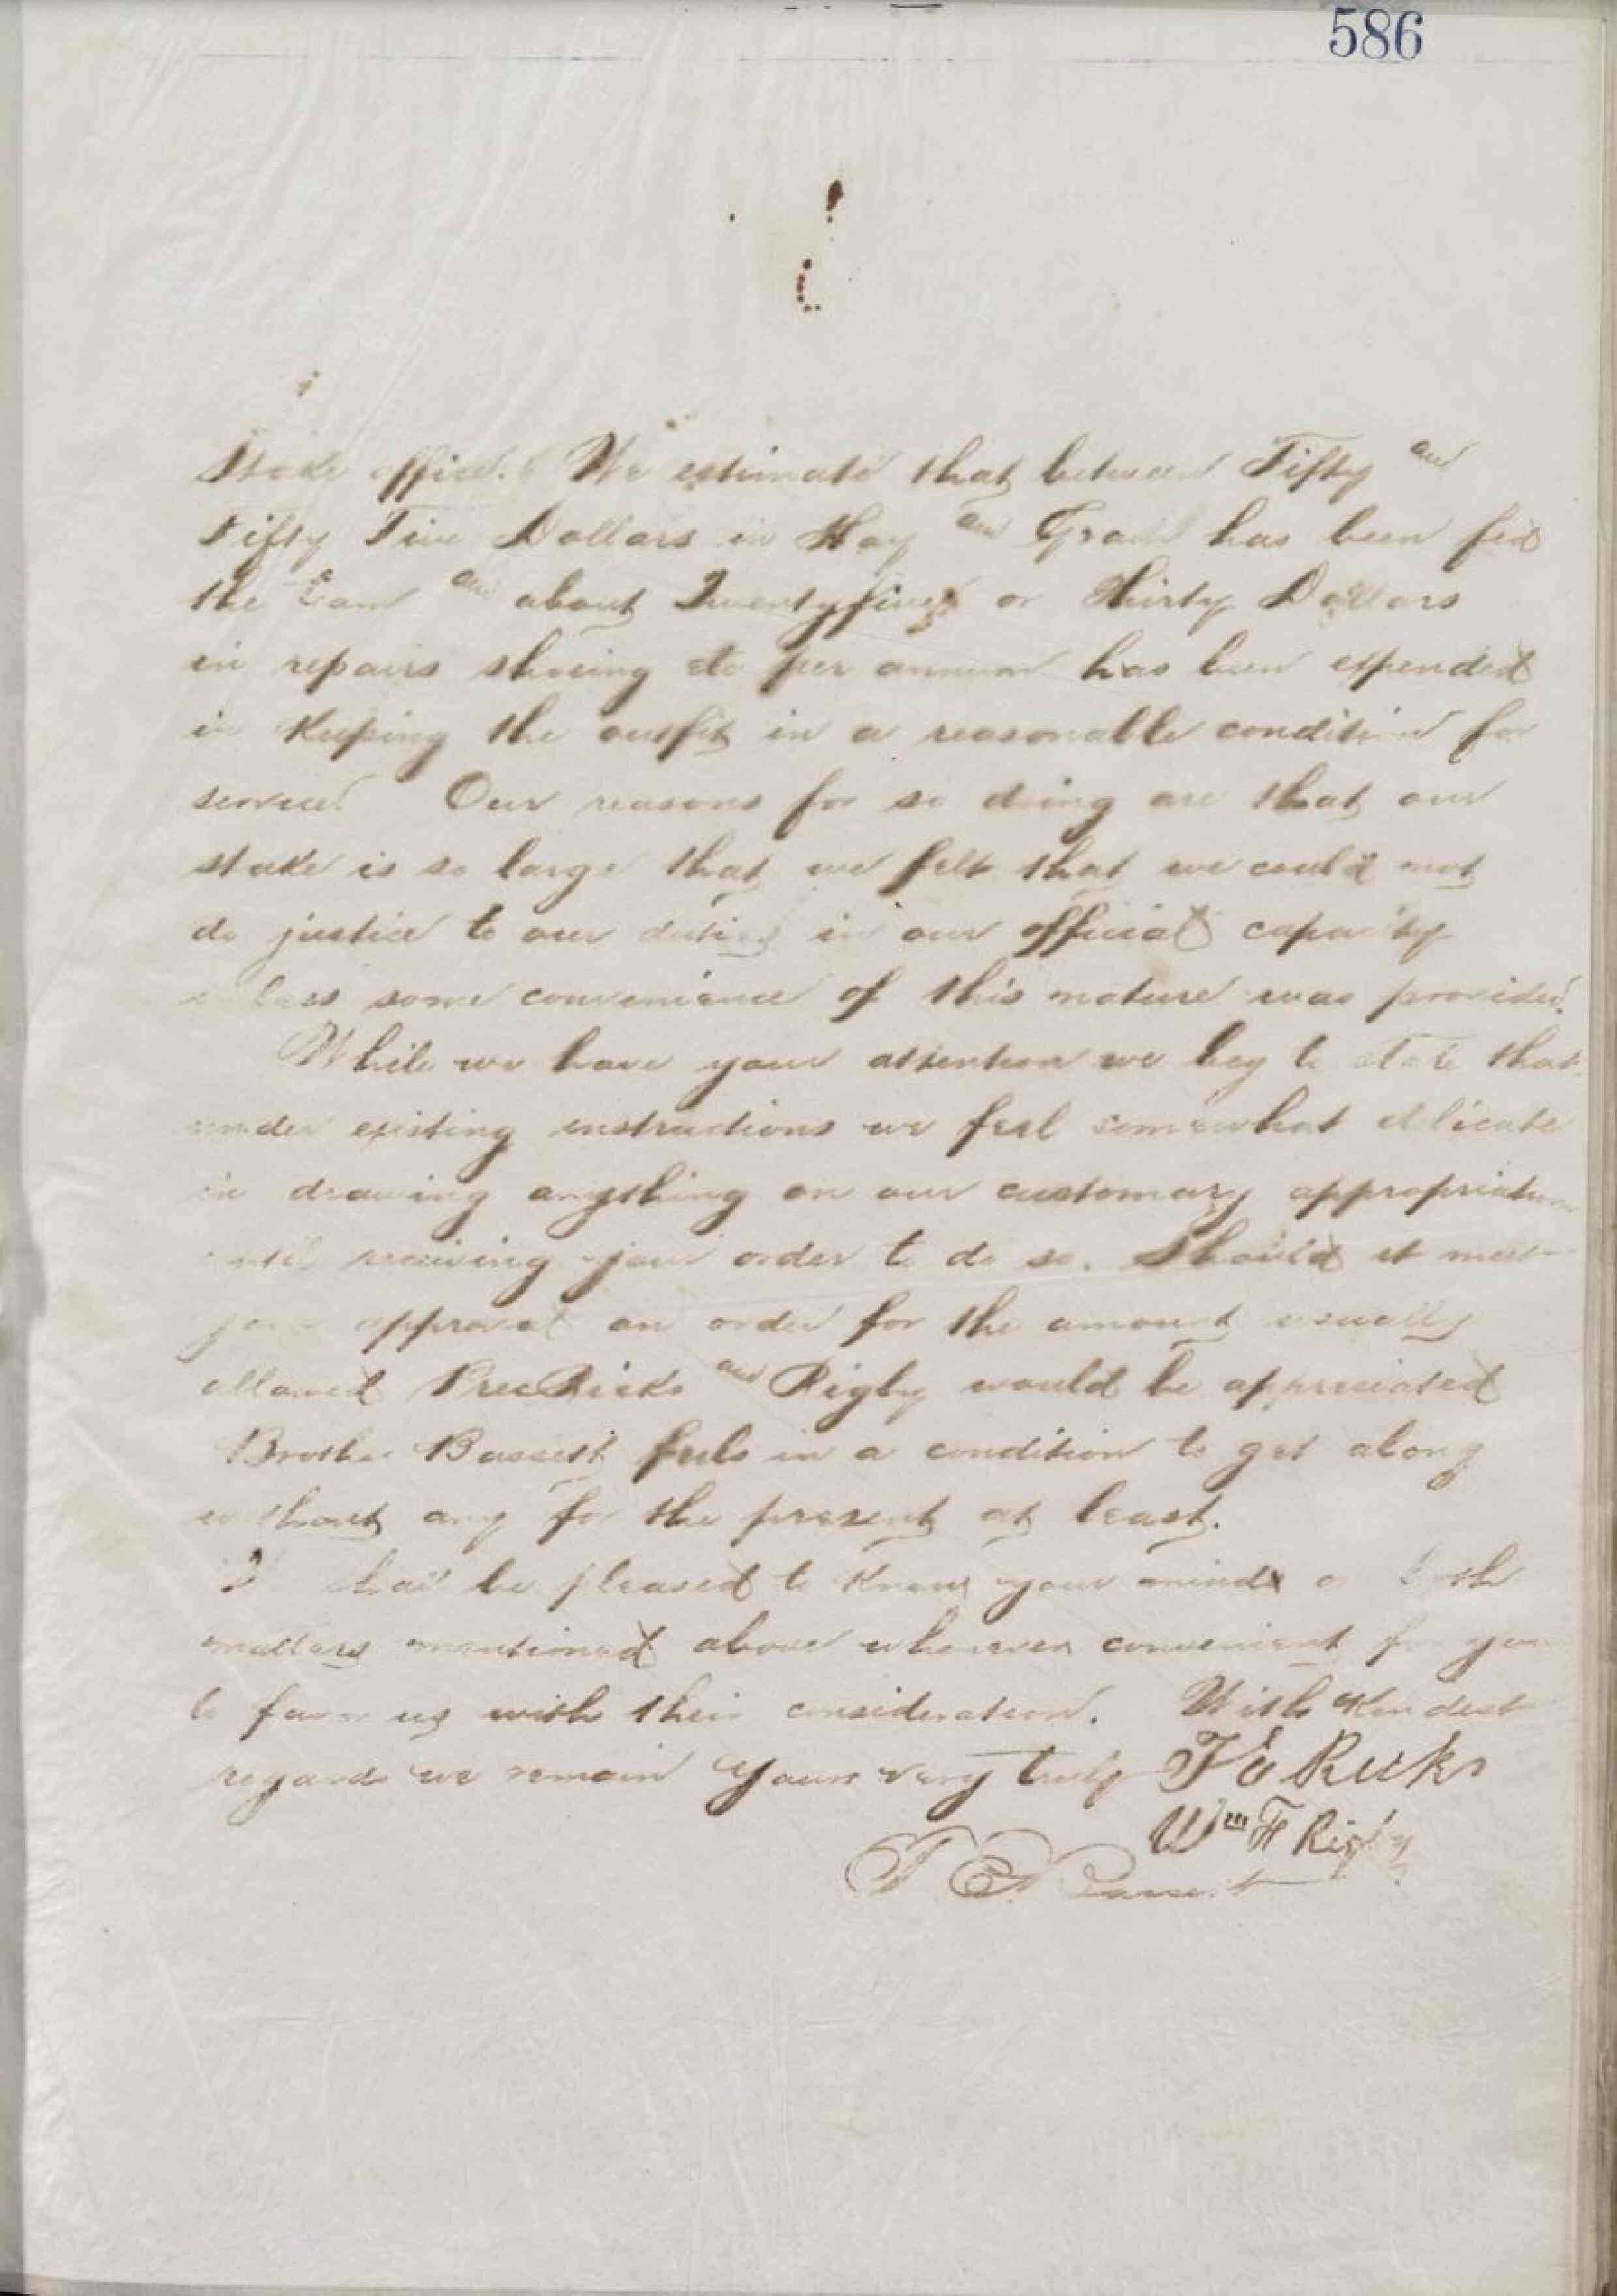 586
Stake office. We estimate that between Fifty and
Fifty Five Dollars in Hay and Grain has been fed
the team and about Twentyfive or Thirty Dollars
in repairs shoeing etc per annum has been expended
in Keeping the outfit in a reasonable condition for
service. Our reasons for so doing are that our
stake is so large that we felt that we could not
do justice to our duties in our official capacity
unless some convenience of this nature was provided.
While we have your attention we beg to state that
under existing instructions we feel somewhat delicate
in drawing anything on our customary appropriation
until receiving your order to do so. Should it meet
your approval an order for the amount usually
allowed Pres Ricks and Rigby would be appreciated
Brother Bassett feels in a condition to get along
without any for the present at least.
shall be pleased to Know your minds on both
matters mentioned above whenever convenient for you
to favor us with their consideration. With Kindest
regards we remain Yours very truly T E Ricks
Wm F Rigby
Bassett